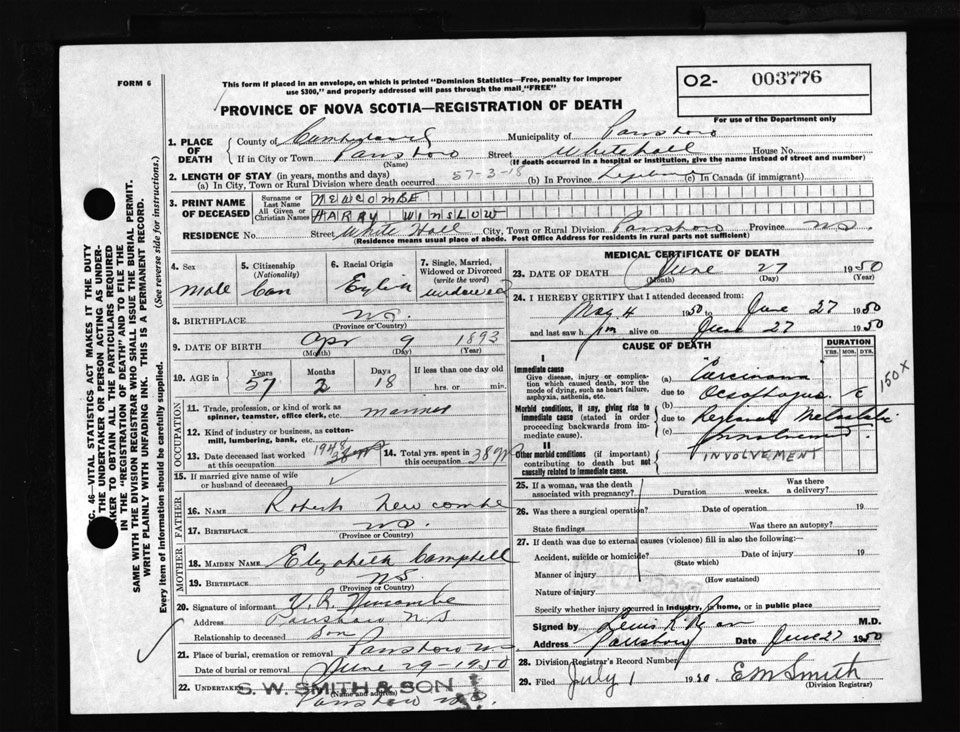 FORM 6
This form if placed in an envelope, on which is printed "Dominion Statistics—Free, penalty for improper
use $300," and properly addressed will pass through the mail "FREE"
PROVINCE OF NOVA SCOTIA—REGISTRATION OF DEATH
O2- 003776
For use of the Department only
SEC. 46—VITAL STATISTICS ACT MAKES IT THE DUTY
OF THE UNDERTAKER OR PERSON ACTING AS UNDER-
TAKER TO OBTAIN ALL THE PARTICULARS REQUIRED
IN THE "REGISTRATION OF DEATH" AND TO FILE THE
SAME WITH THE DIVISION REGISTRAR WHO SHALL ISSUE THE BURIAL PERMIT.
WRITE PLAINLY WITH UNFADING INK. THIS IS A PERMANENT RECORD.
Every item of information should be carefully supplied. (See reverse side for instructions.)
1. PLACE OF DEATH
County of Cumberland Municipality of Parrsboro
If in City or Town Parrsboro Street Whitehall House No.
(Name) (If death occurred in a hospital or institution, give the name instead of street and number)
2. LENGTH OF STAY (in years, months and days)
(a) In City, Town or Rural Division where death occurred 57-3-18 (b) In Province Lifetime (c) In Canada (if immigrant)
3. PRINT NAME OF DECEASED
Surname or Last Name NEWCOMBE
All Given or Christian Names HARRY WINSLOW
RESIDENCE No. Street White Hall City, Town or Rural Division Parrsboro Province N.S.
(Residence means usual place of abode. Post Office Address for residents in rural parts not sufficient)
4. Sex
Male
5. Citizenship (Nationality)
Can
6. Racial Origin
7. Single, Married, Widowed or Divorced (write the word)
widowed
8. BIRTHPLACE N.S.
(Province or Country)
9. DATE OF BIRTH Apr 9 1893
(Month) (Day) (Year)
10. AGE in Years Months Days If less than one day old
57 2 18 hrs. or min.
OCCUPATION
11. Trade, profession, or kind of work as
spinner, teamster, office clerk, etc.
12. Kind of industry or business, as cotton-
mill, lumbering, bank, etc.
13. Date deceased last worked
at this occupation 1948
14. Total yrs. spent in
this occupation 38 yrs
15. If married give name of wife
or husband of deceased
FATHER
16. NAME Robert Newcombe
17. BIRTHPLACE N.S.
(Province or Country)
MOTHER
18. MAIDEN NAME Elizabeth Campbell
19. BIRTHPLACE NS
(Province or Country)
20. Signature of informant V. R. Newcombe
Address Parrsboro N.S
Relationship to deceased Son
21. Place of burial, cremation or removal Parrsboro N.S.
Date of burial, cremation June 29-1950
22. Undertaker S. W. SMITH & SON
(Name and address)
Parrsboro N.S.
MEDICAL CERTIFICATE OF DEATH
23. DATE OF DEATH June 27 1950
(Month) (Day) (Year)
24. I HEREBY CERTIFY that I attended deceased from:
May 4 1950 to June 27 1950
and last saw him alive on June 27 1950
CAUSE OF DEATH
DURATION
YRS. MOS. DYS.
I
Immediate cause
Give disease, injury or complica-
tion which caused death, NOT the
mode of dying, such as heart failure,
asphyxia, asthenia, etc.
(a) "Carcinoma
due to Oesophagus c
150 X
Morbid conditions, if any, giving rise to
immediate cause (stated in order
proceeding backwards from im-
mediate cause).
(b)
due to Regional Metastatic
(c) Involvement
II
Other morbid conditions (if important)
contributing to death but not
causally related to immediate cause.
INVOLVEMENT
25. If a woman, was the death
associated with pregnancy? Duration weeks. Was there
a delivery?
26. Was there a surgical operation? Date of operation 19
State findings Was there an autopsy?
27. If death was due to external causes (violence) fill in also the following:—
Accident, suicide or homicide? Date of injury 19
(State which)
Manner of injury
(How sustained)
Nature of injury
Specify whether injury occurred in industry, in home, or in public place
Signed by M.D.
Address Parrsboro Date June 27 1950
28. Division Registrar's Record Number
29. Filed July 1 1950 E M Smith
(Division Registrar)